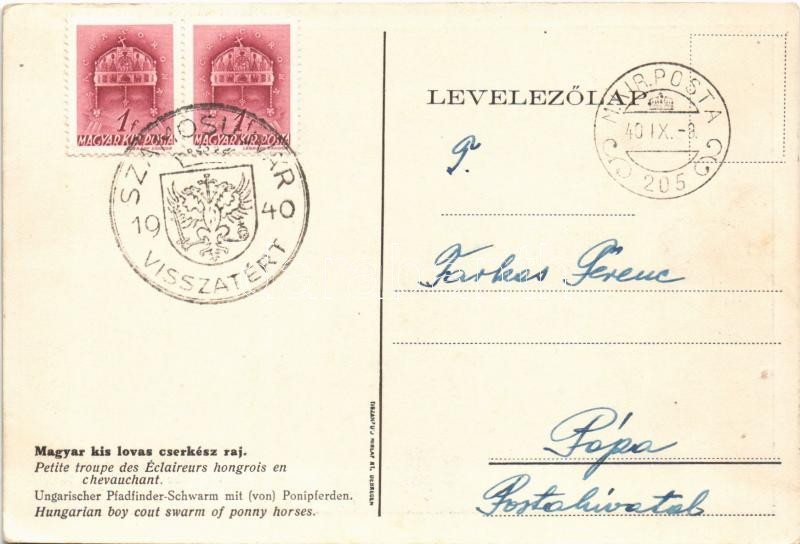 MAGYAR KIR. POSTA
1f
MAGYAR KIR. POSTA
1f
VISSZATÉRT
19 40
LEVELEZŐLAP
M. KIR. POSTA
40 IX. -8.
205
Farkas Ferenc
Pápa
Postahivatal
Magyar kis lovas cserkész raj.
Petite troupe des Éclaireurs hongrois en
chevauchant.
Ungarischer Pfadfinder-Schwarm mit (von) Ponipferden.
Hungarian boy cout swarm of ponny horses.